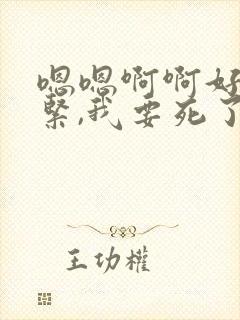 嗯嗯啊啊好
紧,我要死了
王功權